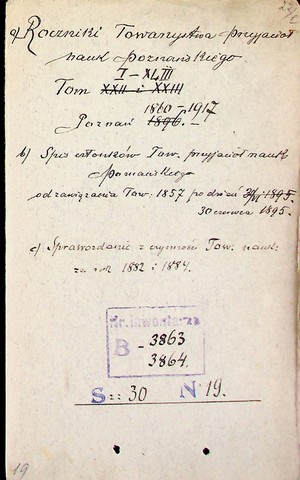 a) Roczniki Towarzystwa przyjaciół
nauk poznańskiego
I - XLIII
Tom XXII i XXIII
1860 - 1917
Poznań 1896.
b) Spis członków Tow. przyjaciół nauk
Poznańskiego
od zawiązania Tow: 1857 po dzień 1895.
30 czerwca 1895.
c) Sprawozdanie z czynności Tow. nauk:
za rok 1882 i 1884.
Nr. inwentarza
B - 3863
3864.
S:: 30 N 19.
19